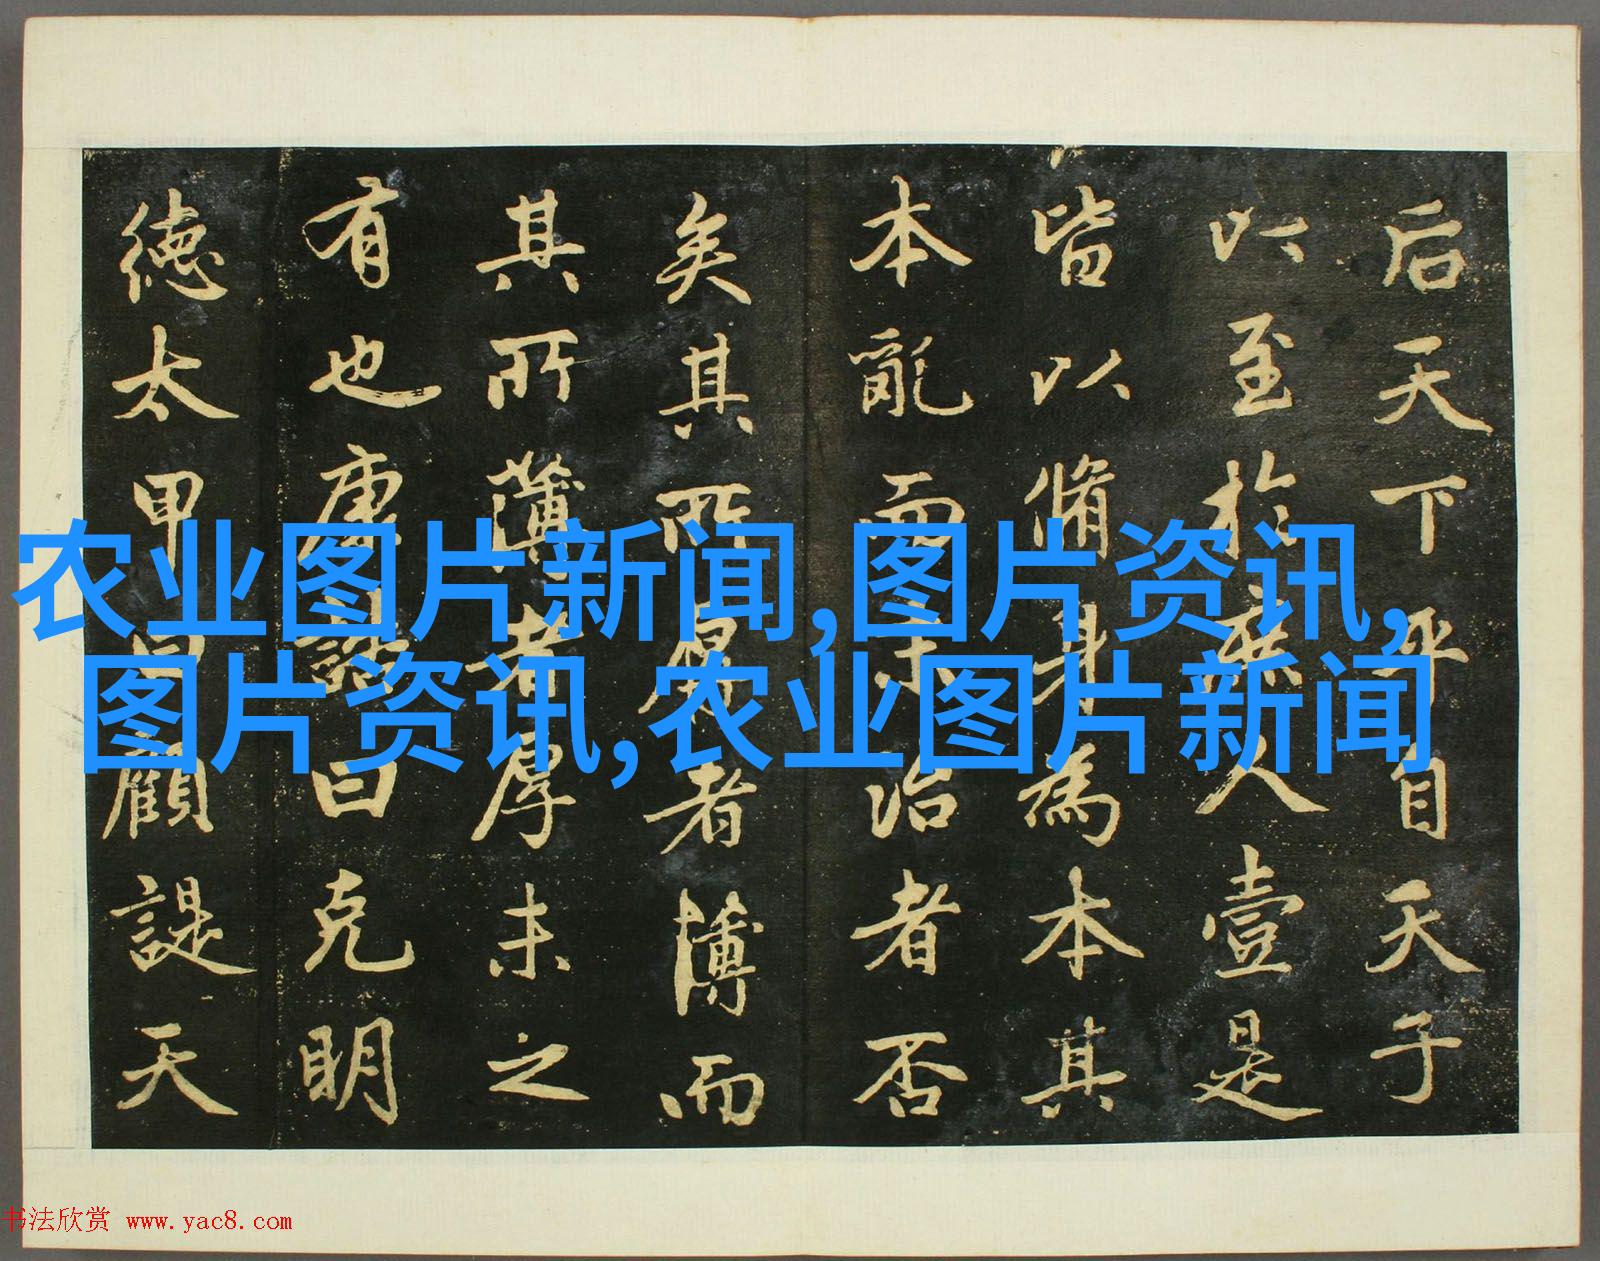 后天下平自天子
以至於庶人壹是
皆以脩身為本其
本亂而末治者否
矣其所厚者薄而
其所薄者厚未之
有也康誥曰克明
徳太甲曰顧諟天
农业图片新闻,图片资讯,
图片资讯,农业图片新闻
书法欣赏 www.yac8.com